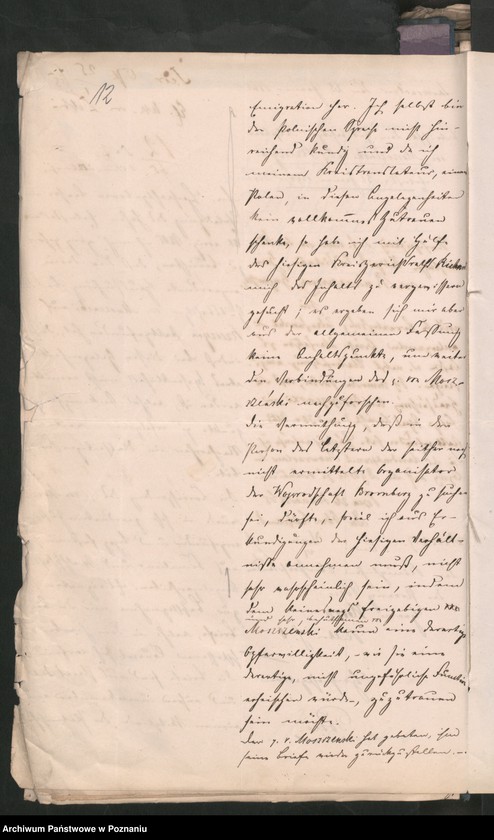 12
Emigration her. Ich selbst bin
der Polnischen Sprache nicht hin-
reichend kundig und da ich
meinem Kreistranslateur, einem
Polen, in diesen Angelegenheiten
kein vollkommenes Zutrauen
schenke, so habe ich mit Hülfe
des hiesigen Kreisgerichtsraths
mich des Inhalts zu vergewissern
gesucht; es ergeben sich mir aber
aus der allgemeinen Fassung
keine Anhaltspunkte, um weiter
den Verbindungen des p. v. Mosz-
nachzuforschen.
Die Vermuthung, daß in der
Person des Letztern der seither noch
nicht ermittelte Organisator
der Woywodschaft Bromberg zu suchen
sei, dürfte, soviel ich aus Er-
kundigungen der hiesigen Verhält-
nisse annehmen muß, nicht
sehr wahrscheinlich sein, indem
dem keineswegs freigebigen
und sehr
Moszczenski kaum eine derartige
Opferwilligkeit, wie sie eine
derartige, nicht ungefährliche Function
erheischen würde, zuzutrauen
sein möchte.
Der p. v. Moszczenski hat gebeten, ihm
seine Briefe wieder zurückzustellen.
Archiwum Państwowe w Poznaniu